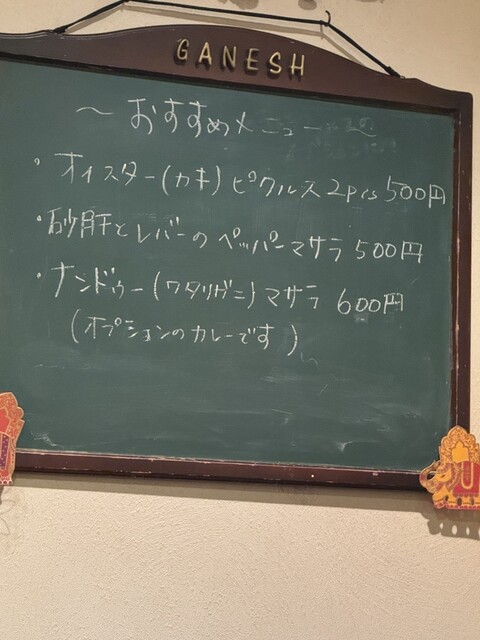 GANESH
～おすすめメニュー～
・オイスター(カキ)ピクルス2pcs 500円
・砂肝とレバーのペッパーマサラ 500円
・ナンドゥー(ワタリガニ)マサラ 600円
(オプションのカレーです)